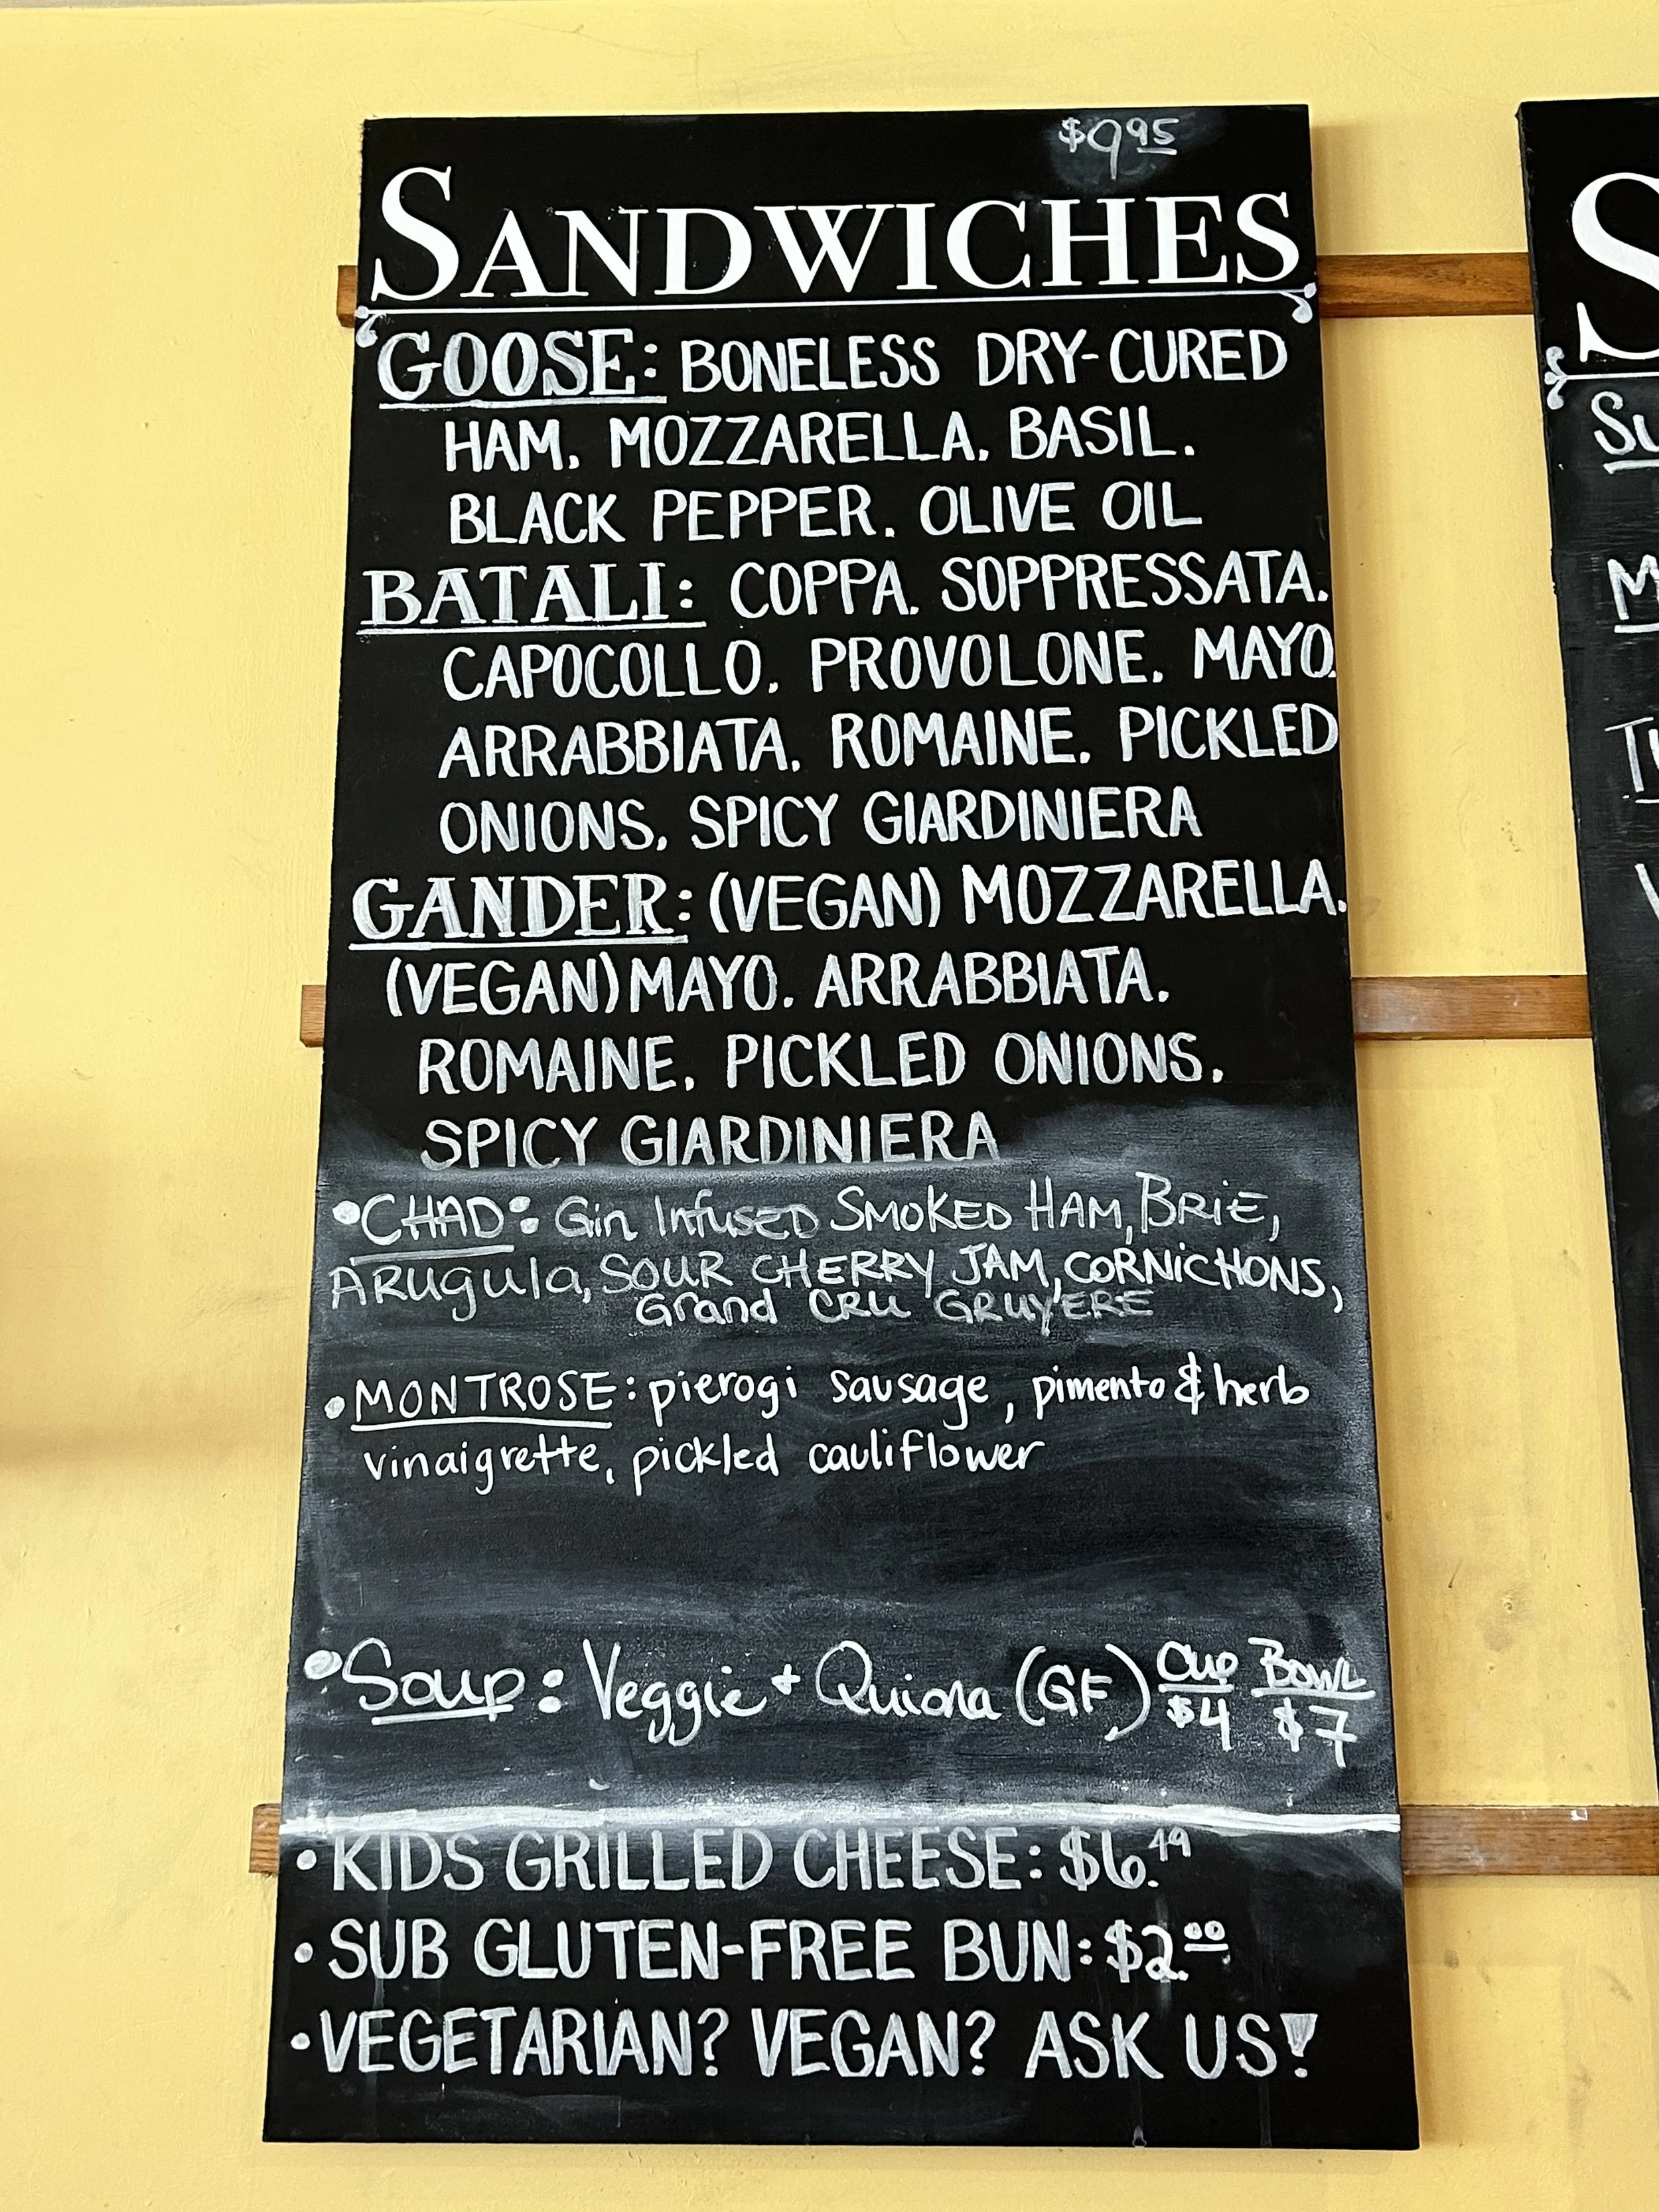 $9.95
SANDWICHES
GOOSE: BONELESS DRY-CURED
HAM, MOZZARELLA, BASIL,
BLACK PEPPER, OLIVE OIL
BATALI: COPPA, SOPPRESSATA,
CAPOCOLLO, PROVOLONE, MAYO,
ARRABBIATA, ROMAINE, PICKLED
ONIONS, SPICY GIARDINIERA
GANDER: (VEGAN) MOZZARELLA,
(VEGAN) MAYO, ARRABBIATA,
ROMAINE, PICKLED ONIONS,
SPICY GIARDINIERA
• CHAD: Gin Infused SMOKED HAM, BRIE,
ARugula, SOUR CHERRY JAM, CORNiCHONS,
Grand CRU GRUYERE
• MONTROSE: pierogi sausage, pimento & herb
vinaigrette, pickled cauliflower
• Soup: Veggie + Quiona (GF) Cup Bowl
$4 $7
• KIDS GRILLED CHEESE: $6.49
• SUB GLUTEN-FREE BUN: $2.00
• VEGETARIAN? VEGAN? ASK US!